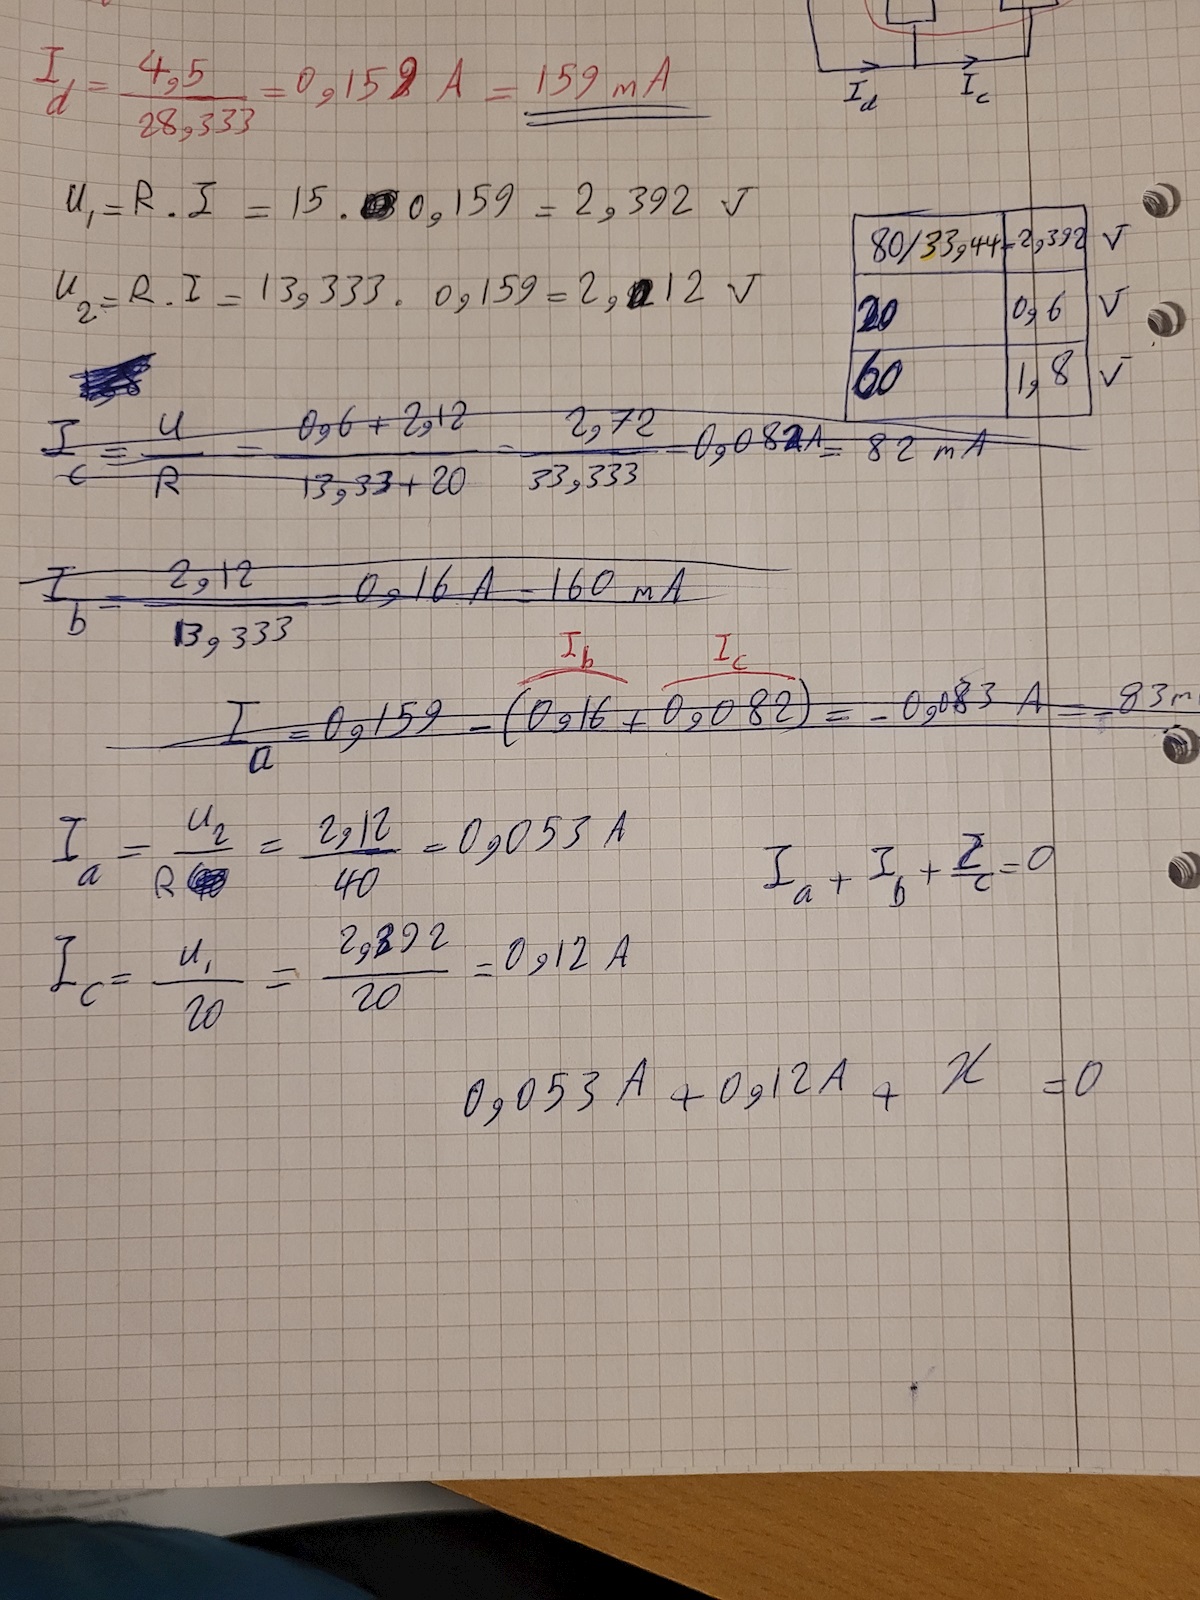 I_d = 4,5 / 28,333 = 0,159 A = 159 mA
I_d I_c
U_1 = R . I = 15 . 0,159 = 2,392 V
U_2 = R . I = 13,333 . 0,159 = 2,12 V
80/33,44 = 2,392 V
20 0,6 V
60 1,8 V
I_c = U / R = 0,6 + 2,12 / 13,33 + 20 = 2,72 / 33,333 = 0,082 A = 82 mA
I_b = 2,12 / 13,333 = 0,16 A = 160 mA
I_b I_c
I_a = 0,159 - (0,16 + 0,082) = - 0,083 A = - 83 m
I_a = U_2 / R = 2,12 / 40 = 0,053 A
I_a + I_b + I_c = 0
I_c = U_1 / 20 = 2,392 / 20 = 0,12 A
0,053 A + 0,12 A + X = 0